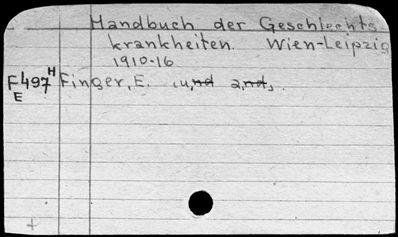 Handbuch der Geschlechts
krankheiten. Wien-Leipzig
1910-16
F497H Finger, E. u,nd a,nd,.
E